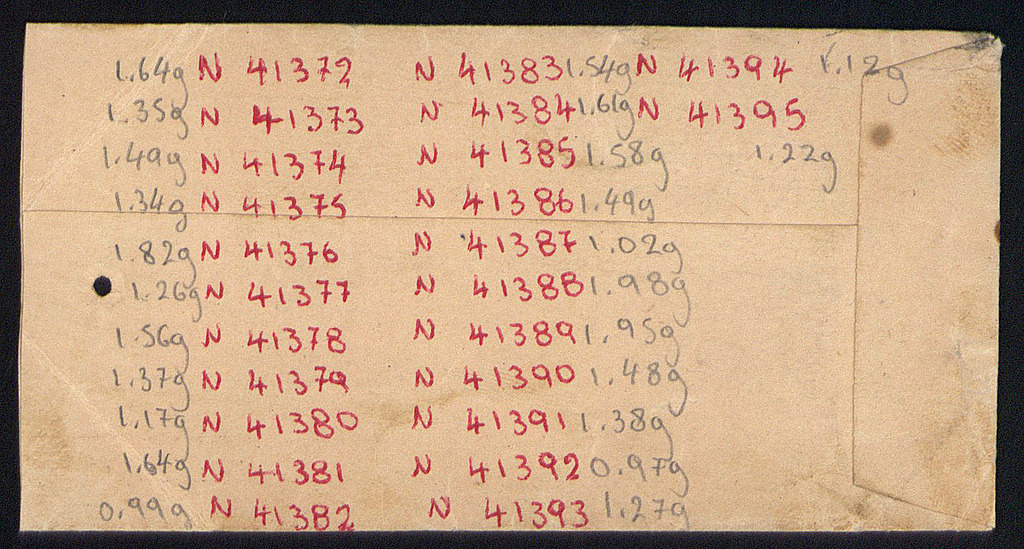 1.64g N 41372 N 41383 1.54g N 41394 1.12g
1.35g N 41373 N 41384 1.61g N 41395
1.49g N 41374 N 41385 1.58g 1.22g
1.34g N 41375 N 41386 1.49g
1.82g N 41376 N 41387 1.02g
1.26g N 41377 N 41388 1.98g
1.56g N 41378 N 41389 1.95g
1.37g N 41379 N 41390 1.48g
1.17g N 41380 N 41391 1.38g
1.64g N 41381 N 41392 0.97g
0.99g N 41382 N 41393 1.27g